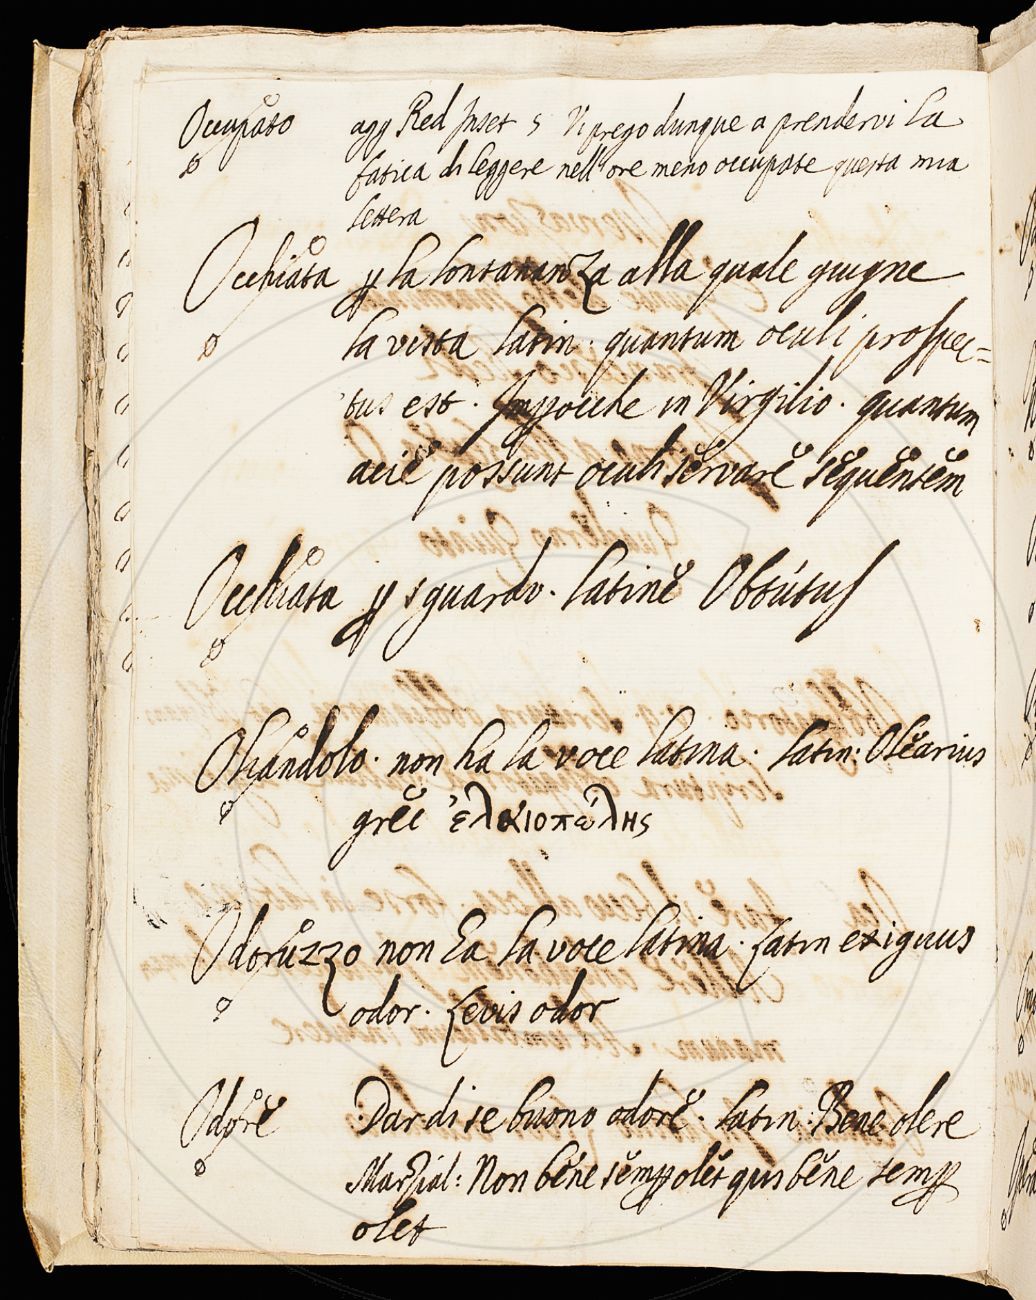 Occupato agg Red Inset 5 Vi prego dunque a prendervi la
fatica di leggere nell'ore meno occupate questa mia
lettera
Occhiata ꝑ la lontananza alla quale giugne
la vista latin. quantum oculi prospec=
tus est. in Virgilio. quantum
acie possunt oculi servare sequentem
Occhiata ꝑ sguardo. latine Obtútus
Oliandolo. non ha la voce latina. latin: Olearius
grec ἐλαιοπώλης
Odoruzzo non ha la voce latina. Latin exiguus
odor. Levis odor
Odore Dar di se buono odore. latin: Bene olere
Marzial: Non bene semꝑ olet qui bene semꝑ
olet